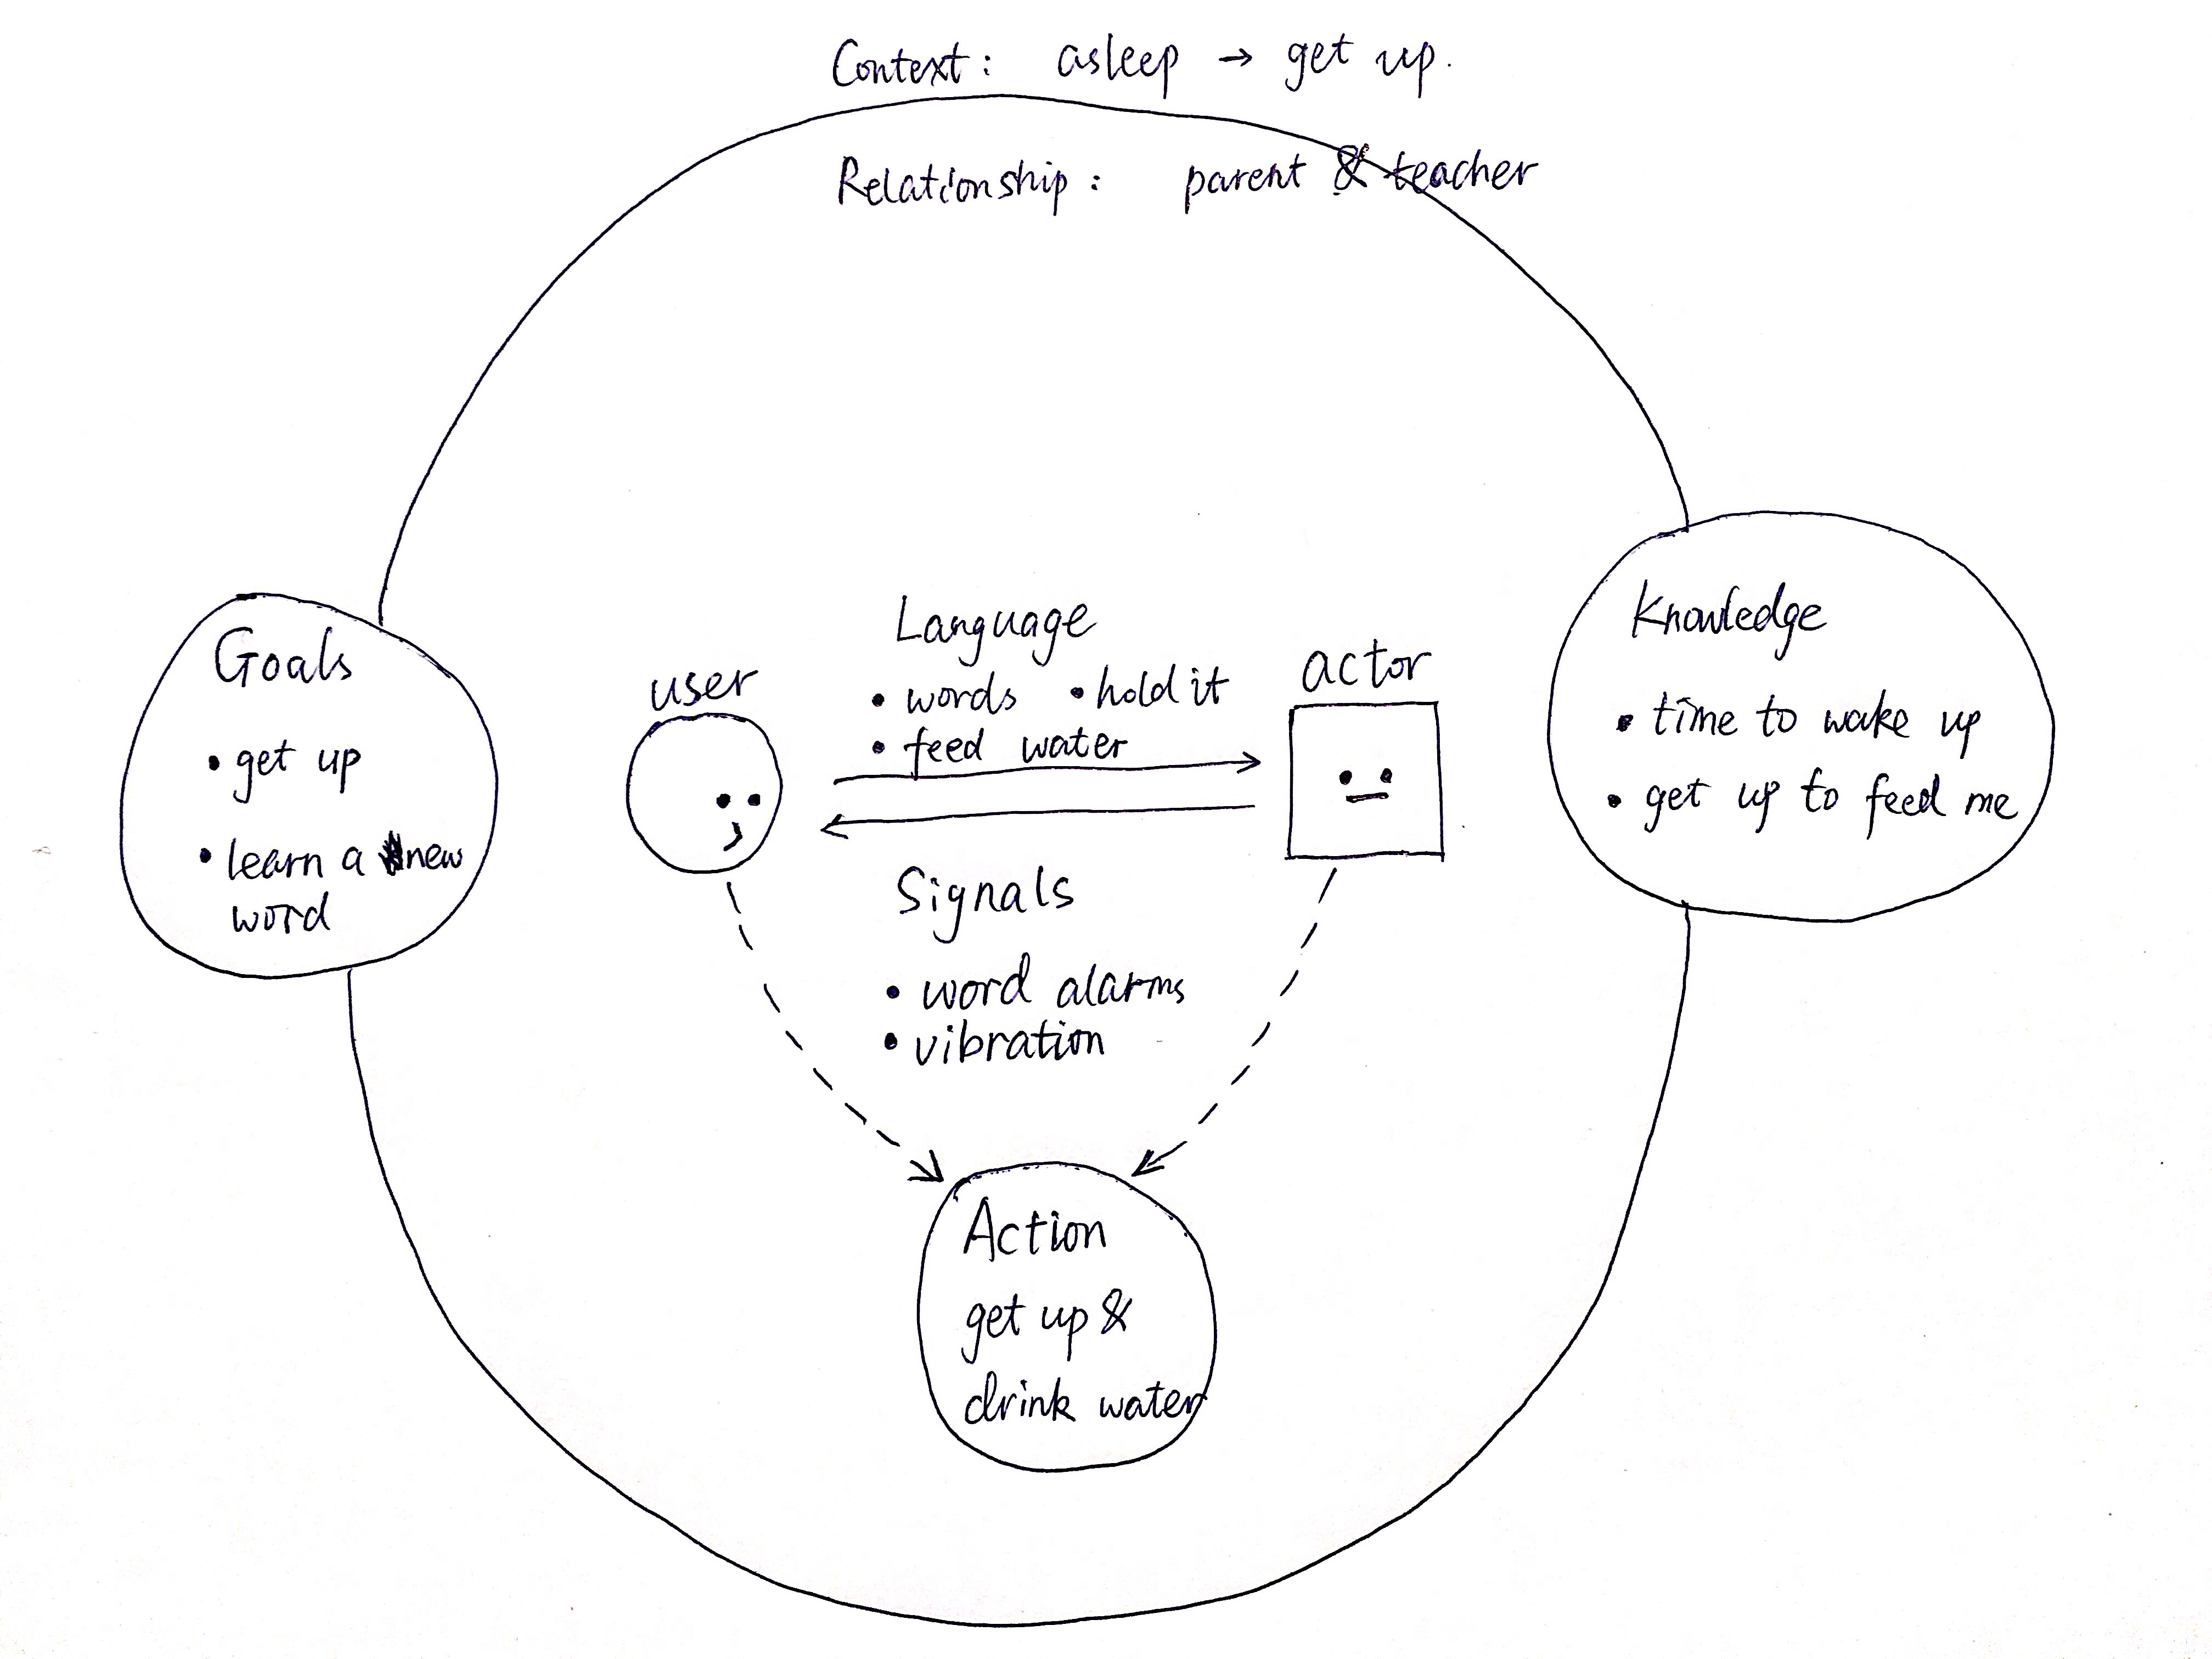 Context: asleep → get up.
Relationship: parent & teacher
Goals
• get up
• learn a new
word
user
Language
• words • hold it
• feed water
actor
Signals
• word alarms
• vibration
Knowledge
• time to wake up
• get up to feed me
Action
get up &
drink water